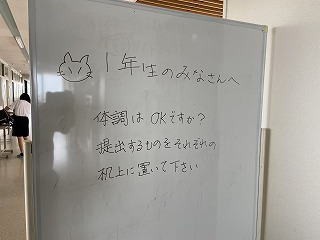 1年生のみなさんへ
体調は OKですか?
提出するものをそれぞれの
机上に置いて下さい